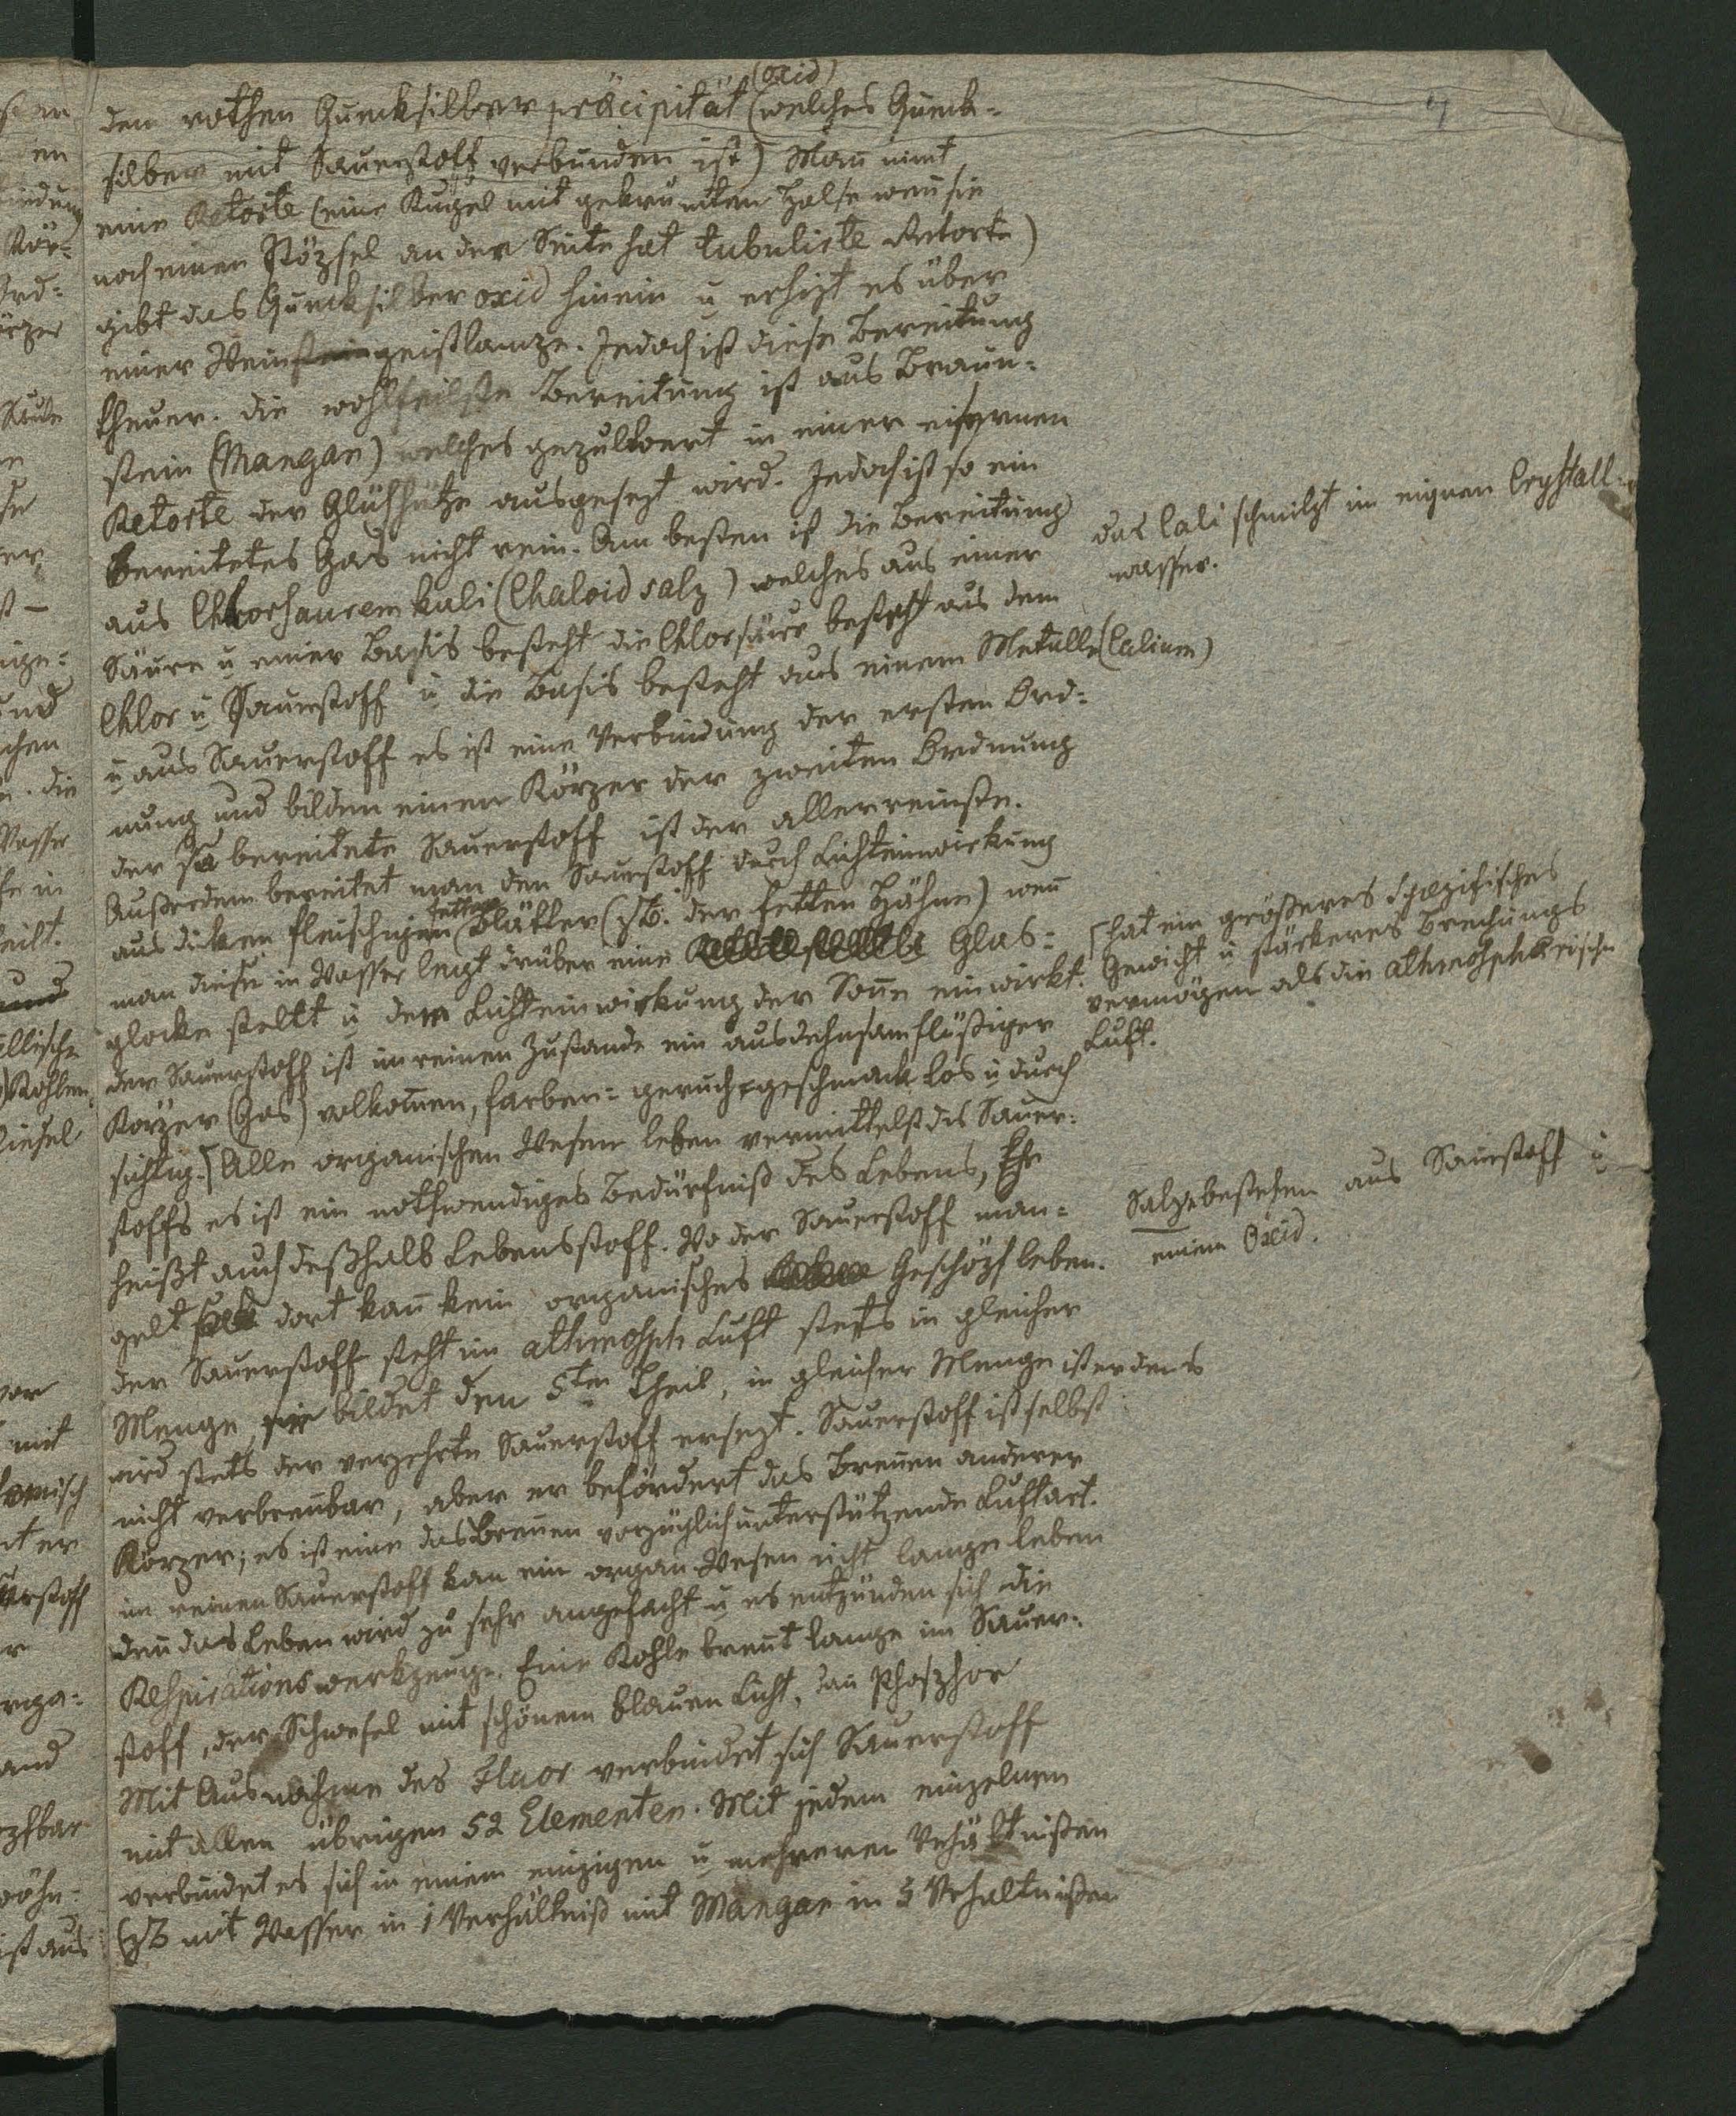 (oxid)
den rothen Quecksilber präcipität (welches Queck-
silber mit Sauerstoff verbunden ist) Man nimt
eine Retorte (eine Kugel mit gekrümten Halse wen̄ sie
noch einen Stöpsel an der Seite hat tubulirte Retorte)
gibt das Quecksilberoxid hinein u erhizt es über
einer Weinsteingeistlampe. Jedoch ist diese Bereitung
theuer. die wohlfeilste Bereitung ist aus Braun-
stein (Mangan) welches gepulvert in einer eisernen
Retorte der Glühhitze ausgesezt wird. Jedoch ist so ein
bereitetes Gas nicht rein. Am besten ist die Bereitung
aus Chlorsaurem kali (Chaloidsalz) welches aus einer
Säure u einer Basis besteht die Chlorsäure besteht aus dem
Chlor u Sauerstoff u die Basis besteht aus einem Metalle (Calium)
u aus Sauerstoff es ist eine Verbindung der ersten Ord-
nung und bilden einen Körper der zweiten Ordnung
der so bereitete Sauerstoff ist der allerreinste.
Außerdem bereitet man den Sauerstoff durch Lichteinwirkung
aus dicken fleischigen fetten Blätter (zB. der fetten Hähne) wen̄
man diese in Wasser legt drüber eine Glas-
glocke stellt u dem Lichteinwirkung der Son̄e einwirkt.
der Sauerstoff ist im reinen Zustande ein ausdehnsamflüßiger
Körper (Gas) volkom̄en, farben- geruch- geschmack los u durch
sichtig. [Alle organischen Wesen leben vermittelst des Sauer-
stoffs es ist ein nothwendiges Bedürfniß des Lebens, Er
heißt auch deßhalb Lebensstoff. Wo der Sauerstoff man-
gelt dort kan̄ kein organisches Geschöpf leben.
der Sauerstoff steht im athmosph Luft stets in gleicher
Menge, sie bildet den 5ten Theil, in gleicher Menge ist er den s
wird stets der verzehrte Sauerstoff ersezt. Sauerstoff ist selbst
nicht verbren̄bar, aber er befördert das Bren̄en anderer
Körper; es ist eine das Bren̄en vorzüglich unterstützende Luftart.
im reinen Sauerstoff kan ein organ Wesen nicht lange leben
den̄ das Leben wird zu sehr angefacht u es entzünden sich die
Respirationswerkzeuge. Eine Kohle bren̄t lange im Sauer-
stoff, der Schwefel mit schönem blauen Licht, dan̄ Phosphor
Mit Ausnahme des Fluor verbindet sich Sauerstoff
mit allen übrigen 52 Elementen. Mit jedem einzelnen
verbindet es sich in einem einzigen u mehreren Vehältnißen
(zB mit Wasser in 1 Verhältniß mit Mangan in 5 Vehaltnißen
das Cali schmilzt im eignen Crystall-
wasser.
[hat ein größeres Spezifisches
Gewicht u stärkeres Brechungs
vermögen als die athmosphärische
Luft.
Salze bestehen aus Sauerstoff u
einem Oxid.